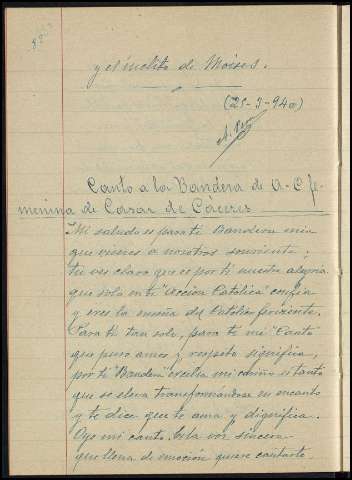 y el inclito de Moises.
(21-3-940)
Canto a la Bandera de A-C fe-
menina de Casar de Cáceres
Mi saludo es para ti Bandera mia
que vienes a nosotros sonriente,
tu ves claro que es por ti nuestra alegria
que solo en ti "Acción Católica confia
y eres la enseña del Católico
Para ti tan solo, para ti mi "Canto"
que puro amor y respeto significa,
por ti "Bandera" mi cariño si tanto
que se eleva transformandose en encanto
y te dice que te ama y dignifica.
Oye mi canto. la voz sincera
que llena de emoción quiere cantarte